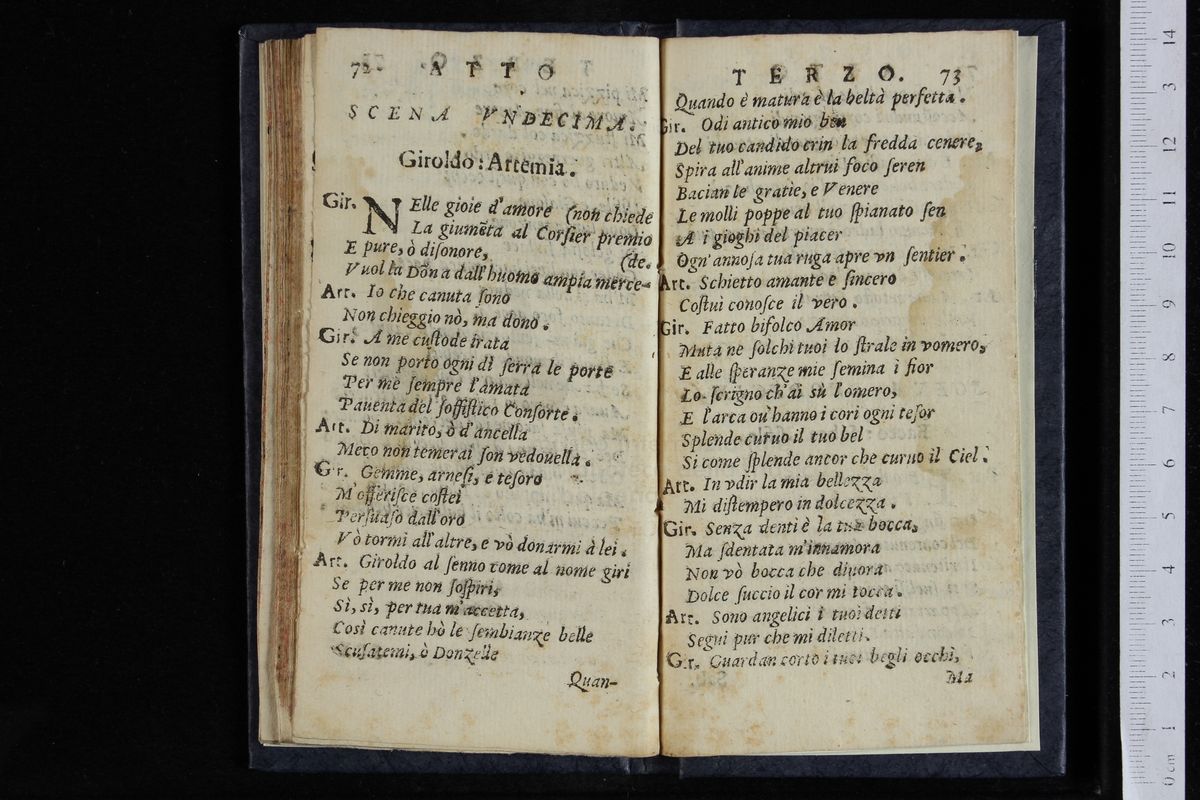 72 ATTO
SCENA VNDECIMA.
Giroldo: Artemia.
Gir. NElle gioie d'amore (non chiede
La giumẽta al Corsier premio
E pure, ò diſonore, (de.
Vuol la Dõna dall'huomo ampia merce-
Art. Io che canuta ſono
Non chieggio nò, ma dono.
Gir. A me cuſtode irata
Se non porto ogni dì ſerra le porte
Per me ſempre l'amata
Pauenta del ſoffiſtico Conſorte.
Art. Di marito, ò d'ancella
Meco non temerai ſon vedouella.
Gir. Gemme, arneſi, e teſoro
M'offeriſce coſtei
Perſuaſo dall'oro
Vò tormi all'altre, e vò donarmi à lei.
Art. Giroldo al ſenno come al nome giri
Se per me non ſoſpiri,
Sì, sì, per tua m'accetta,
Così canute hò le ſembianze belle
Scuſatemi, ò Donzelle
Quan-
TERZO. 73
Quando è matura è la beltà perfetta.
Gir. Odi antico mio ben
Del tuo candido crin la fredda cenere,
Spira all'anime altrui foco ſeren
Bacian le gratie, e Venere
Le molli poppe al tuo ſpianato ſen
A i gioghi del piacer
Ogn'annoſa tua ruga apre vn ſentier.
Art. Schietto amante e ſincero
Coſtui conoſce il vero.
Gir. Fatto bifolco Amor
Muta ne ſolchi tuoi lo ſtrale in vomero,
E alle ſperanze mie ſemina i fior
Lo ſcrigno ch'ai sù l'omero,
E l'arca ou'hanno i cori ogni teſor
Splende curuo il tuo bel
Si come ſplende ancor che curuo il Ciel.
Art. In vdir la mia bellezza
Mi diſtempero in dolcezza.
Gir. Senza denti è la tua bocca,
Ma ſdentata m'innamora
Non vò bocca che diuora
Dolce ſuccio il cor mi tocca.
Art. Sono angelici i tuoi detti
Segui pur che mi diletti.
Gir. Guardan corto i tuoi begli occhi,
Ma